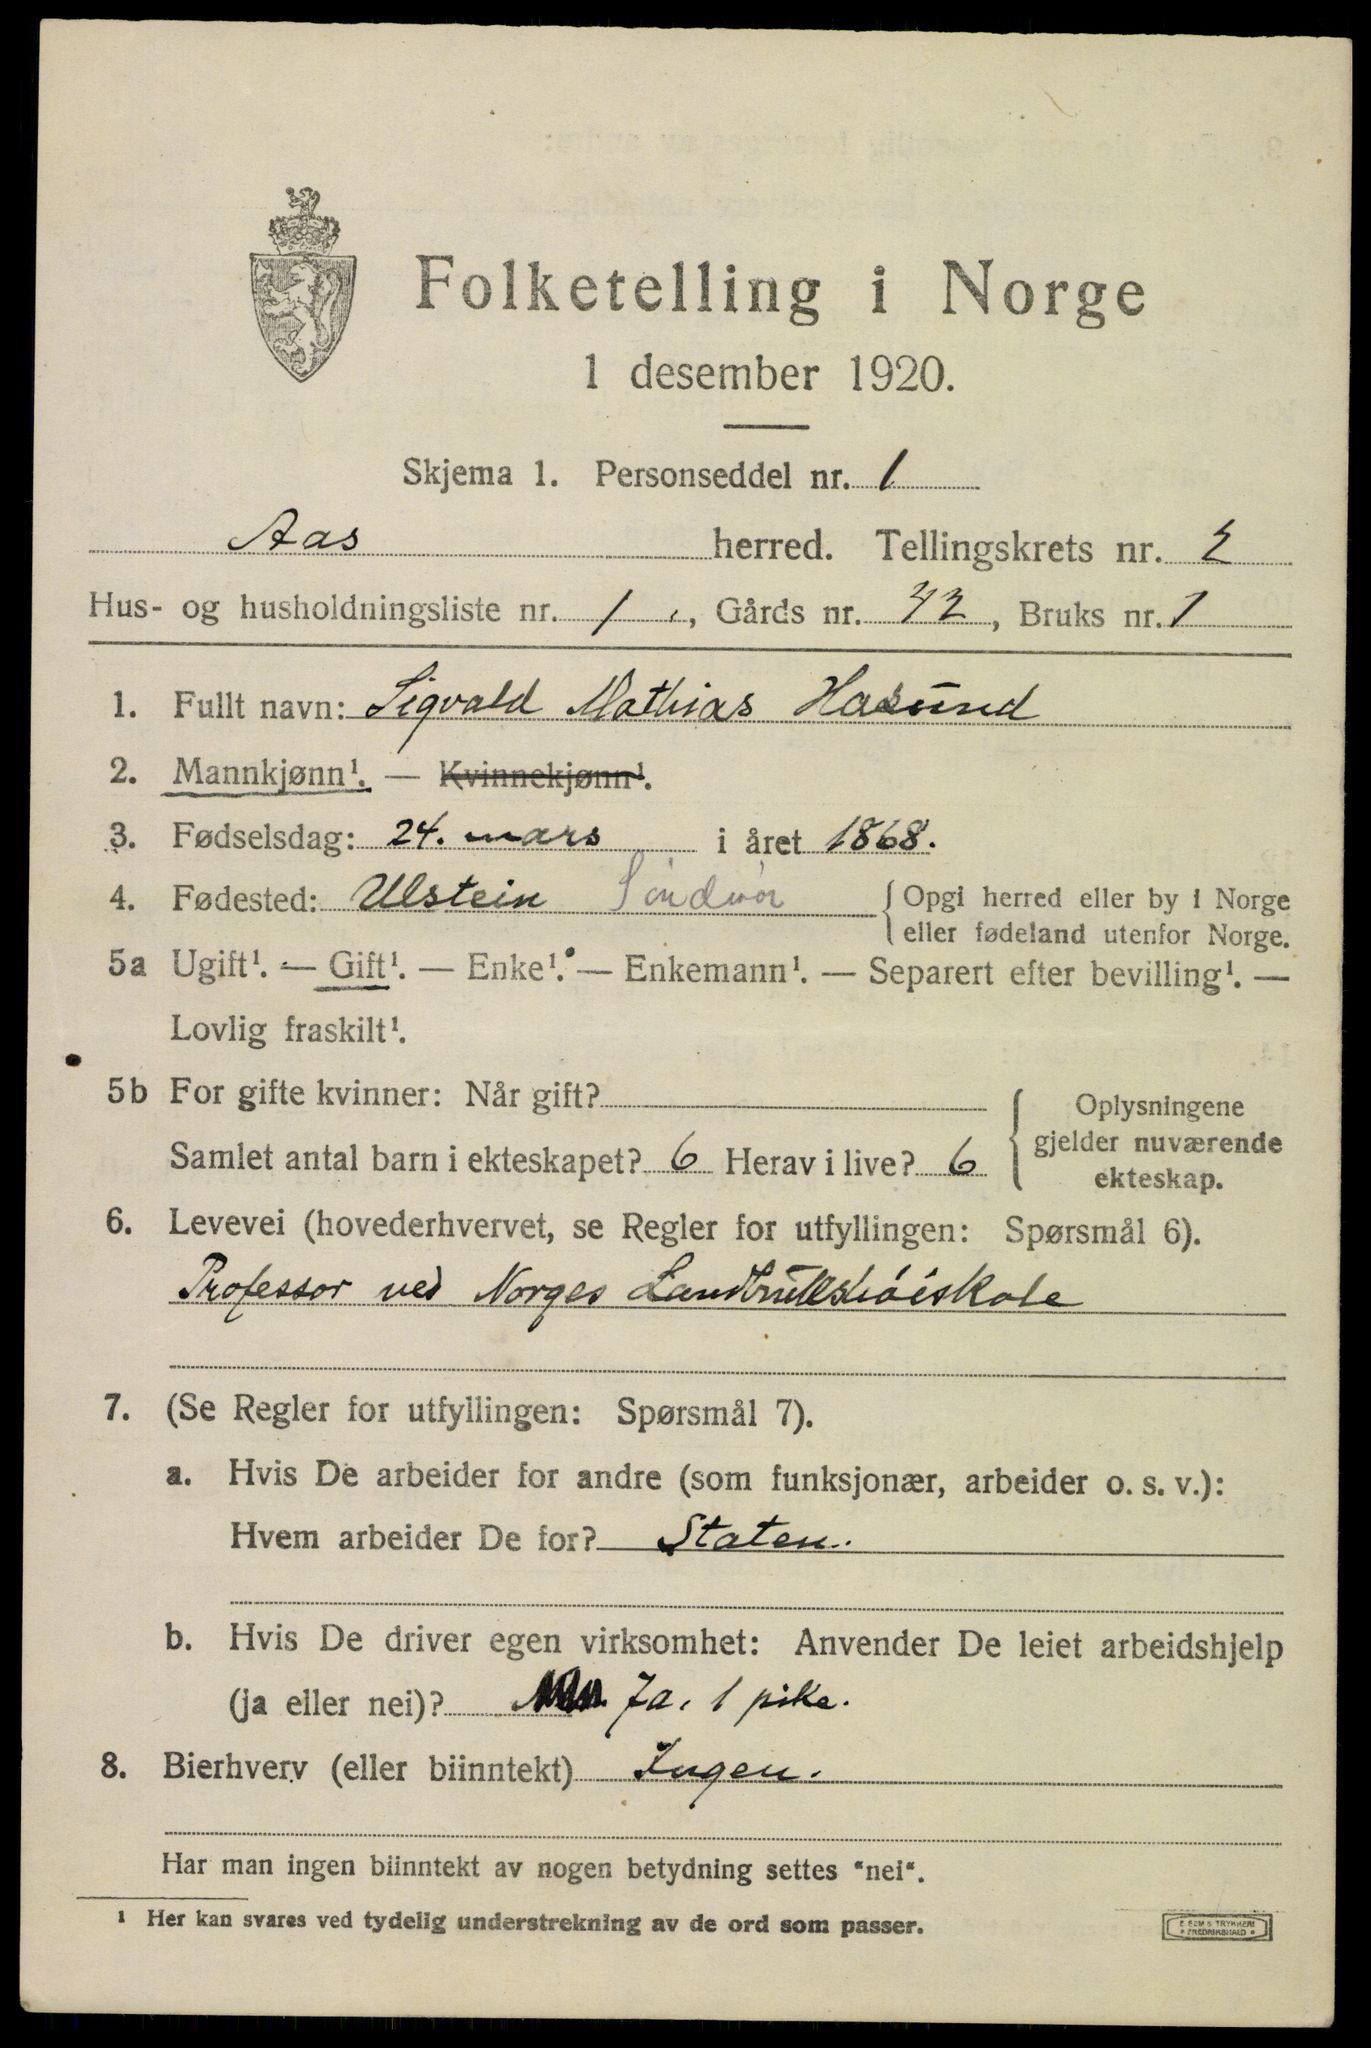 Folketelling i Norge
1 desember 1920.
Skjema 1. Personseddel nr. 1
Aas herred. Tellingskrets nr. 2
Hus- og husholdningsliste nr. 1, Gårds nr. 42, Bruks nr. 1
1. Fullt navn: Sigvald Mathias Hasund
2. Mannkjønn¹. — Kvinnekjønn¹.
3. Fødselsdag: 24. mars i året 1868.
4. Fødested: Ulstein Söndmör { Opgi herred eller by i Norge
eller fødeland utenfor Norge.
5a Ugift¹. — Gift¹. — Enke¹. — Enkemann¹. — Separert efter bevilling¹. —
Lovlig fraskilt¹.
5b For gifte kvinner: Når gift?
Samlet antal barn i ekteskapet? 6 Herav i live? 6
{ Oplysningene
gjelder nuværende
ekteskap.
6. Levevei (hovederhvervet, se Regler for utfyllingen: Spørsmål 6).
Professor ved Norges Landbrukshöiskole
7. (Se Regler for utfyllingen: Spørsmål 7).
a. Hvis De arbeider for andre (som funksjonær, arbeider o. s. v.):
Hvem arbeider De for? Staten.
b. Hvis De driver egen virksomhet: Anvender De leiet arbeidshjelp
(ja eller nei)? Ja, 1 pike.
8. Bierhverv (eller biinntekt) Ingen.
Har man ingen biinntekt av nogen betydning settes "nei".
¹ Her kan svares ved tydelig understrekning av de ord som passer.
E. SEM'S TRYKKERI
FREDRIKSHALD